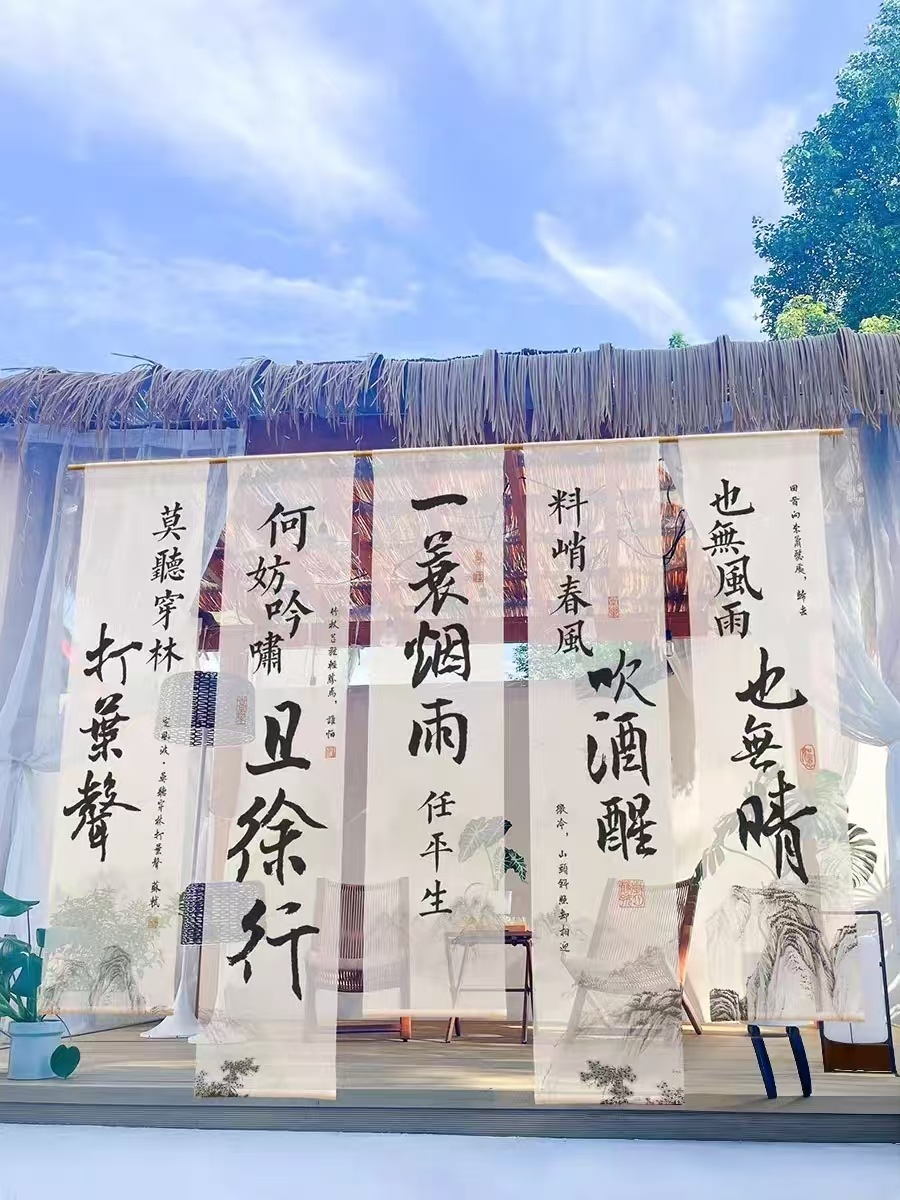 莫聽穿林
打葉聲
定風波·莫聽穿林打葉聲 蘇軾
何妨吟嘯
且徐行
竹杖芒鞋輕勝馬，誰怕
一蓑烟雨
任平生
料峭春風
吹酒醒
微冷，山頭斜照却相迎
回首向來蕭瑟處，歸去
也無風雨
也無晴